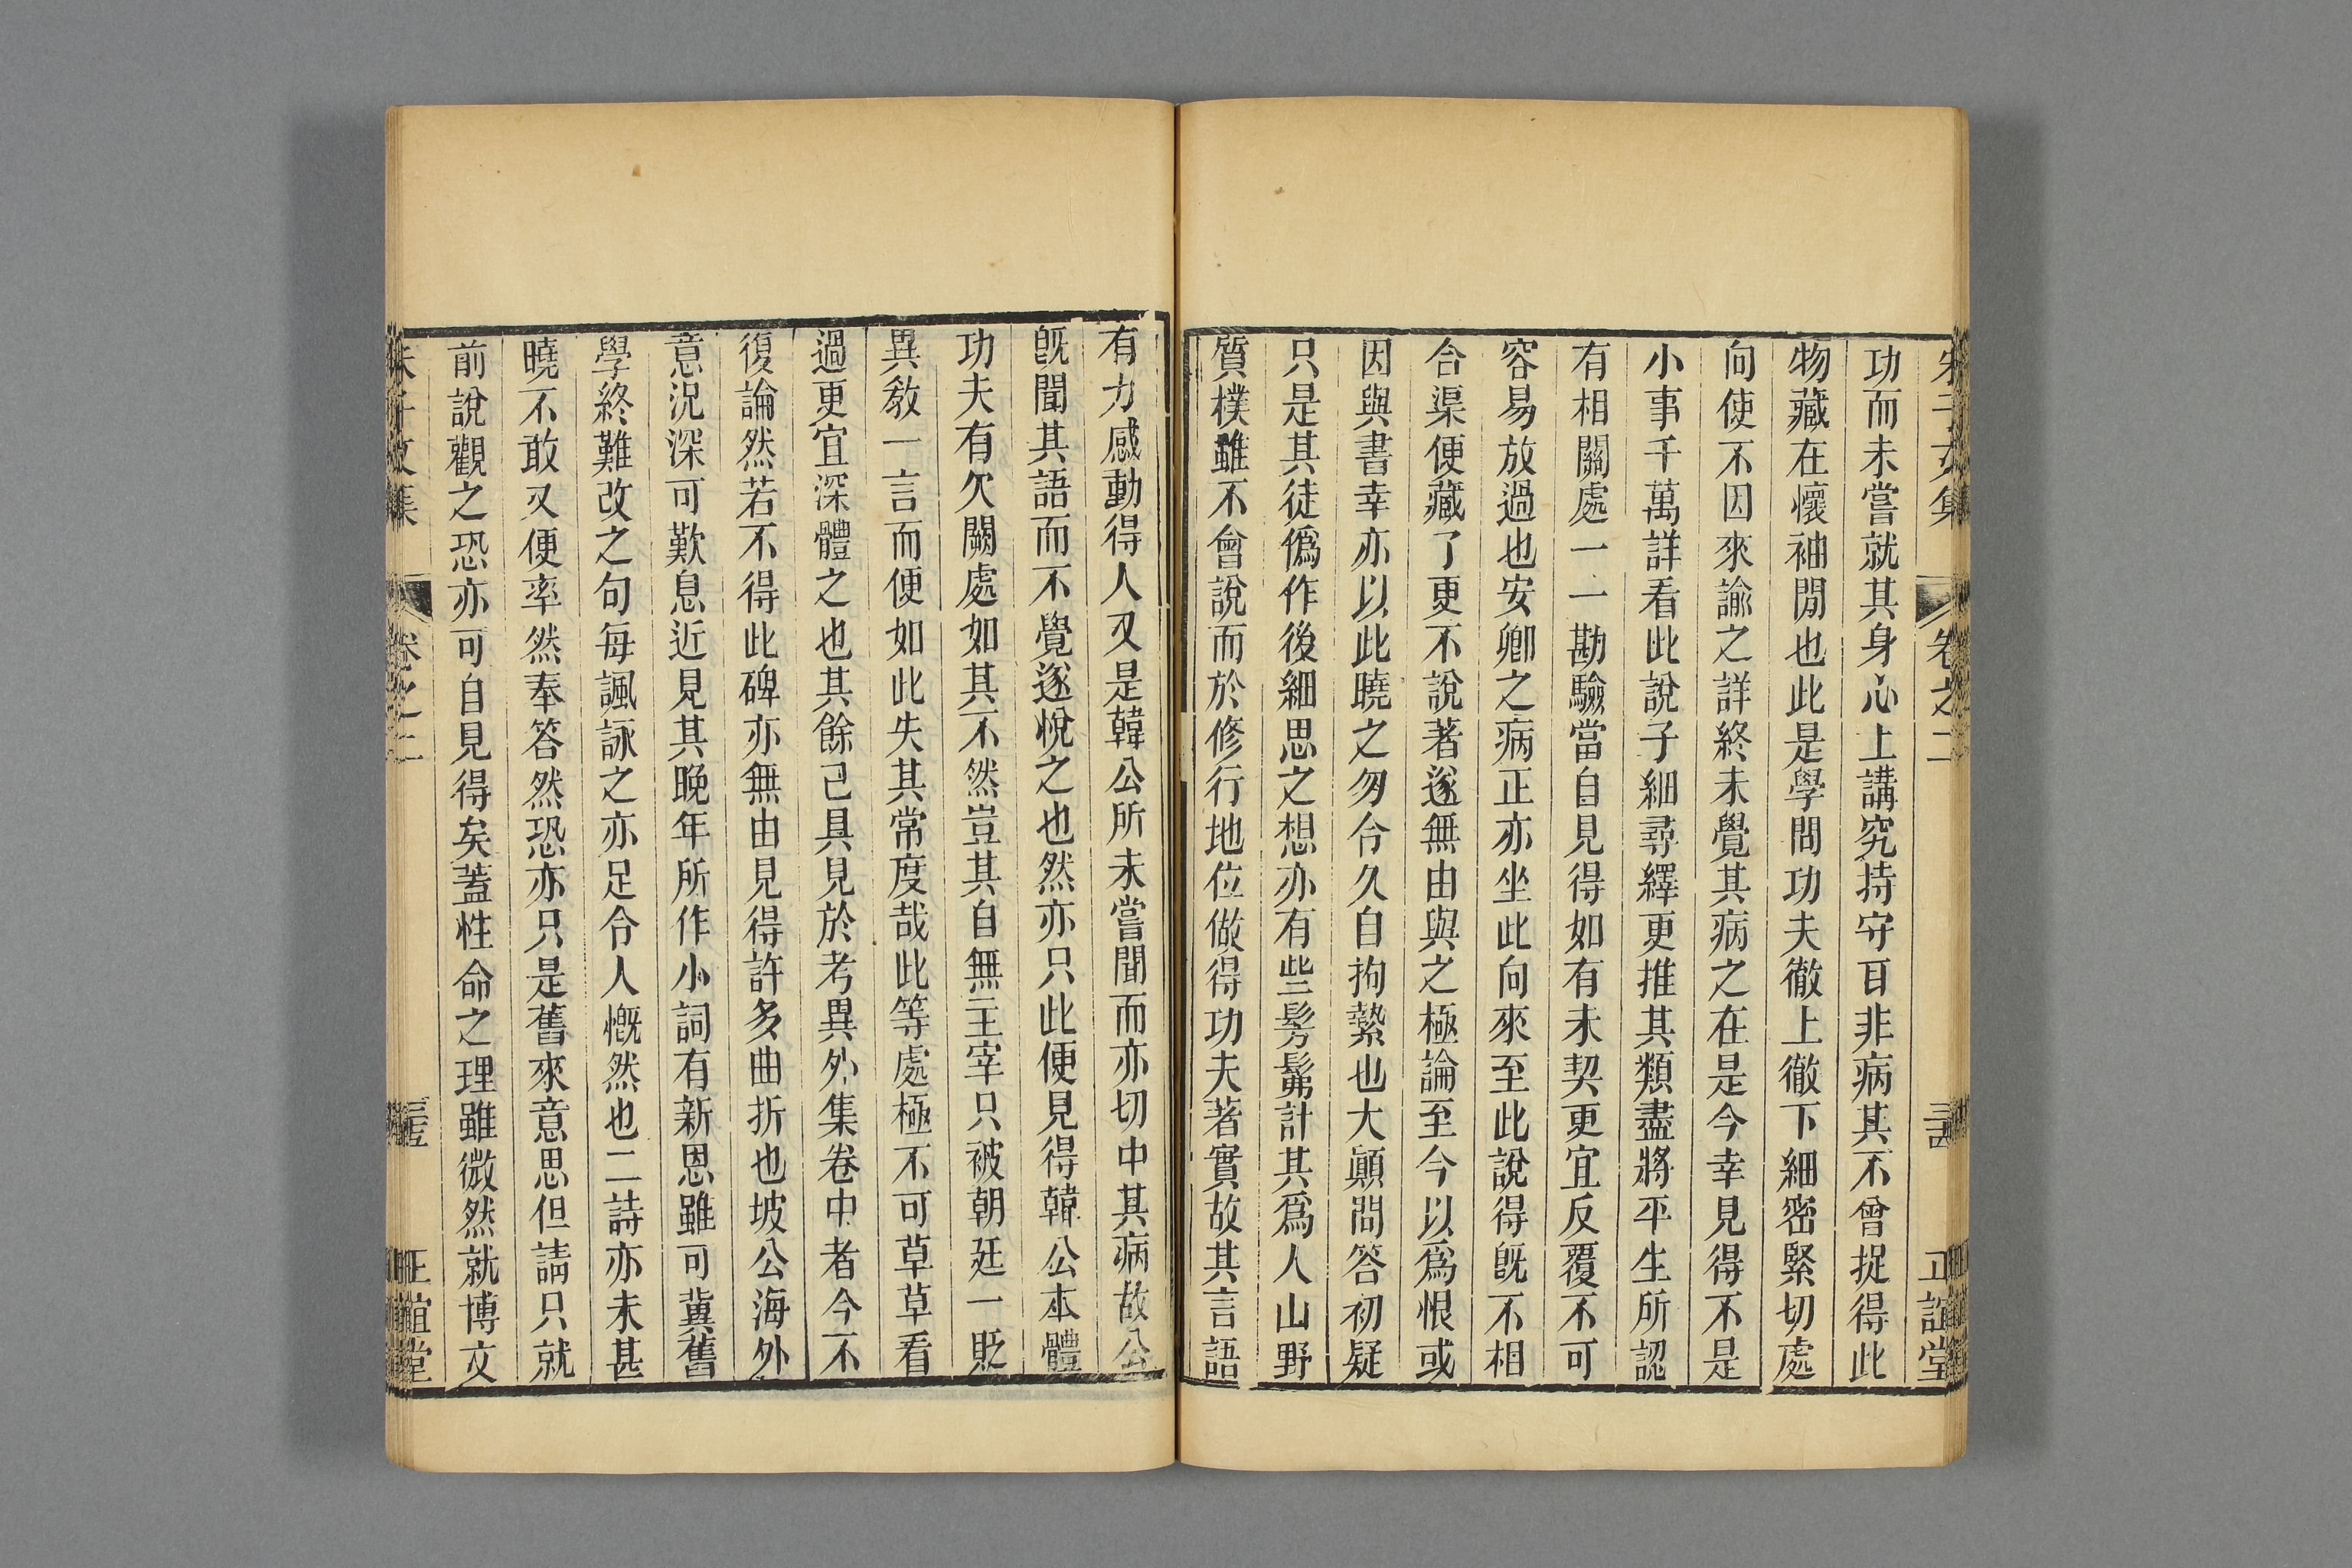 朱子文集 卷之二 正誼堂
功而未嘗就其身心上講究持守耳非病其不曾捉得此
物藏在懷袖閒也此是學問功夫徹上徹下細密緊切處
向使不因來諭之詳終未覺其病之在是今幸見得不是
小事千萬詳看此說子細尋繹更推其類盡將平生所認
有相關處一一勘驗當自見得如有未契更宜反覆不可
容易放過也安卿之病正亦坐此向來至此說得旣不相
合渠便藏了更不說著遂無由與之極論至今以爲恨或
因與書幸亦以此曉之勿令久自拘縶也大顚問答初疑
只是其徒僞作後細思之想亦有些髣髴計其爲人山野
質樸雖不會說而於修行地位做得功夫著實故其言語
有力感動得人又是韓公所未嘗聞而亦切中其病故公
旣聞其語而不覺遂悅之也然亦只此便見得韓公本體
功夫有欠闕處如其不然豈其自無主宰只被朝廷一貶
異敎一言而便如此失其常度哉此等處極不可草草看
過更宜深體之也其餘已具見於考異外集卷中者今不
復論然若不得此碑亦無由見得許多曲折也坡公海外
意況深可歎息近見其晚年所作小詞有新恩雖可冀舊
學終難改之句每諷詠之亦足令人慨然也二詩亦未甚
曉不敢又便率然奉答然恐亦只是舊來意思但請只就
前說觀之恐亦可自見得矣蓋性命之理雖微然就博文
朱子文集 卷之二 正誼堂